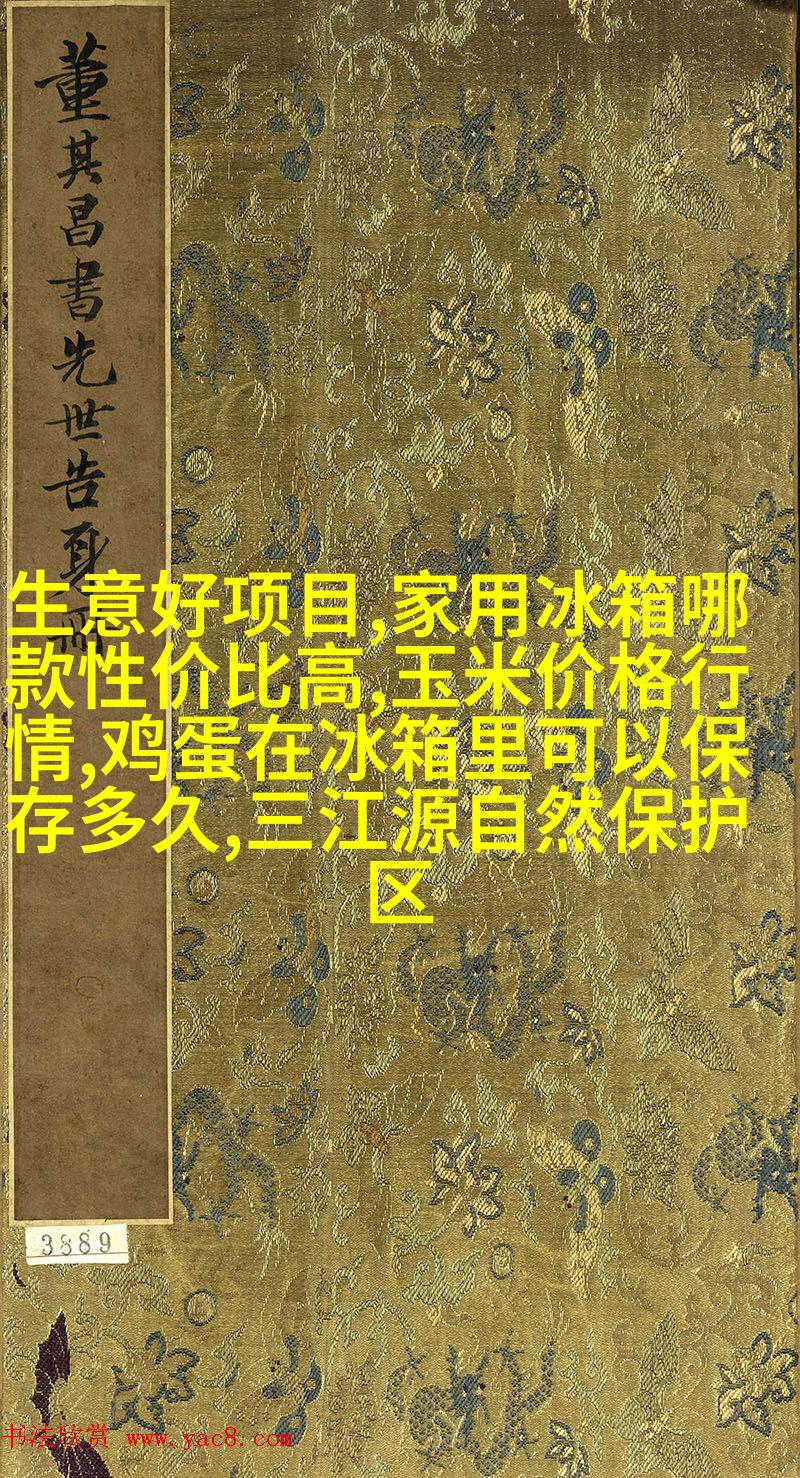 董其昌書先世告身冊
生意好项目,家用冰箱哪
款性价比高,玉米价格行
情,鸡蛋在冰箱里可以保
存多久,三江源自然保护
区
3889
书法欣赏 www.yac8.com